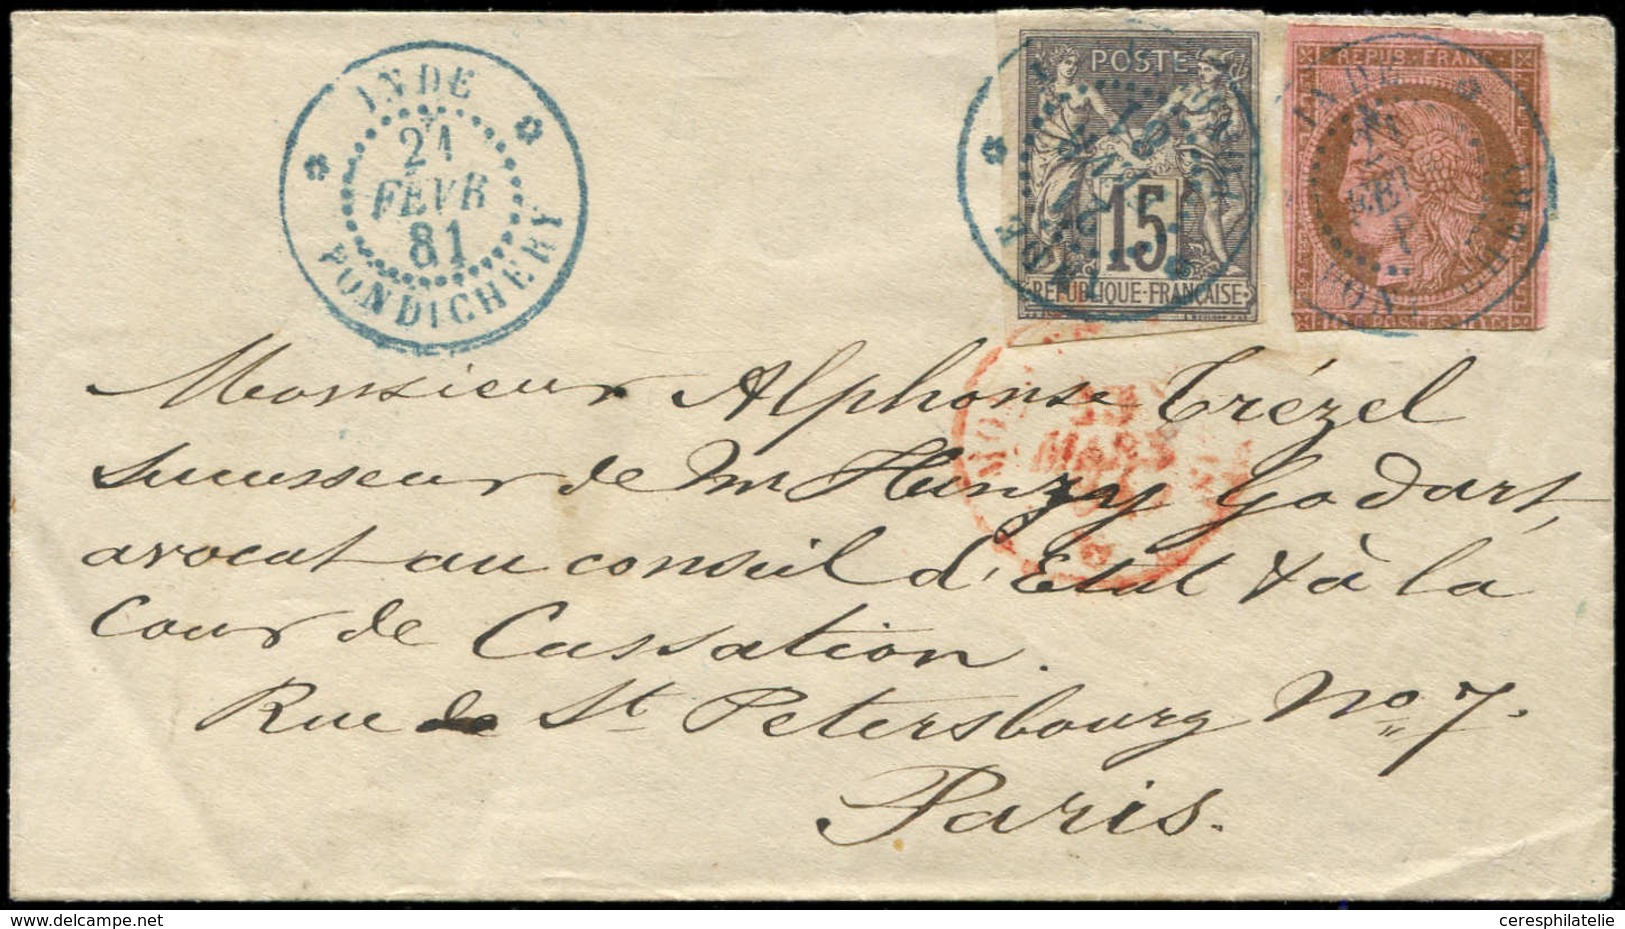 INDE
21
FEVR
81
PONDICHERY
POSTE
15
RÉPUBLIQUE-FRANÇAISE
INDE
REPUB. FRANC.
Monsieur Alphonse Trézel
MARS
successeur de Mr Henry Godart,
avocat au conseil d'Etat & à la
Cour de Cassation.
Rue de St Petersbourg No. 7.
Paris.
www.delcampe.net
ceresphilatelie